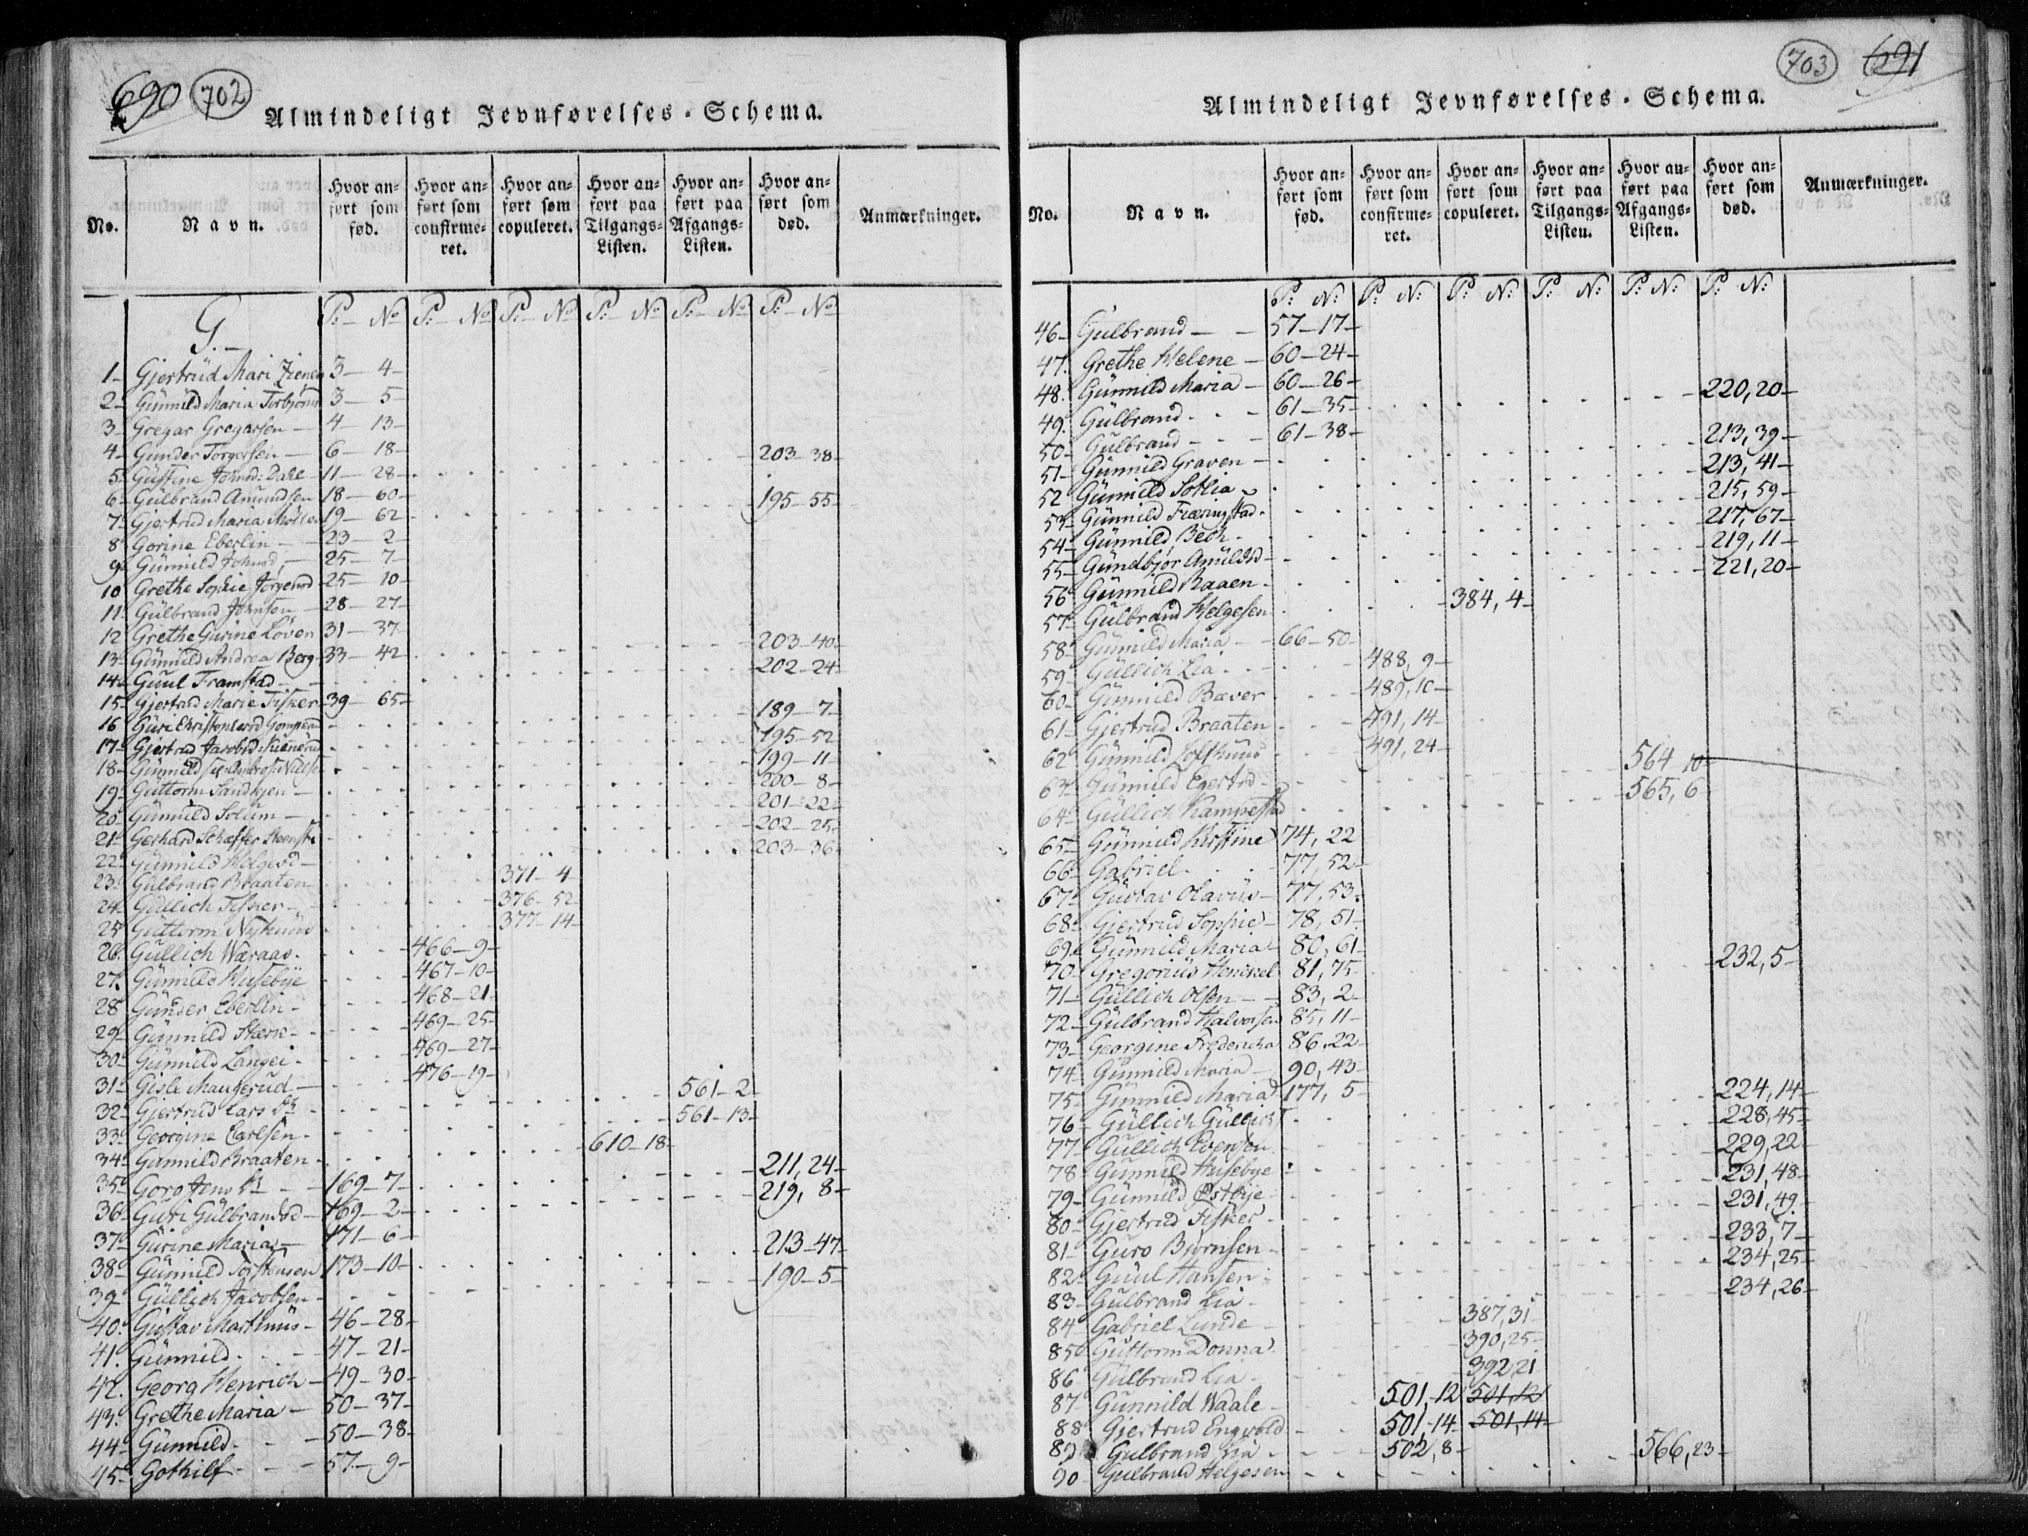 690 702
Almindeligt Jevnførelses-Schema.
No. Navn. Hvor anført som fød. Hvor anført som confirmeret. Hvor anført som copuleret. Hvor anført paa Tilgangs-Listen. Hvor anført paa Afgangs-Listen. Hvor anført som død. Anmærkninger.
G. P. No P. No P. No P. No P. No P. No
1 Gjertrud Mari 3 4
2 Günnild Maria 3 5
3 Gregar Gregarsen 4 13
4 Gunder Torgersen 6 18 203-38
5 Güstine Johnsd: Dahl 11 28
6 Gülbrand Amundsen 18 60 195-55
7 Gjertrud Maria Møller 19 62
8 Gorine Eberlin 23 2
9 Günnild Johnsd 25 7
10 Grethe Sophie Jørgensd 25 10
11 Gülbrand Johnsen 28 27
12 Grethe Gurine Löver 31 37
13 Günnild Andrea Berg 33 42 203-40
14 Guul Framstad 202-24
15 Gjertrud Marie Fisker 39 65
16 Guri Christophersd 189-7
17 Gjertrud Jacobsd 195-52
18 Günnild 199-11
19 Guttorm Sandhjen 200-8
20 Günnild Solum 201-22
21 Gerhard Schæffer 202-25
22 Günnild Helgesd 203-36
23 Gülbrand Braaten 371-4
24 Gullich Fisker 376-52
25 Güttorm Nyhuus 377-14
26 Güllich Waraas 466-9
27 Günnild Husebye 467-10
28 Günder Eberlin 468-21
29 Günnild Stærk 469-25
30 Günnild Langei 469-27
31 Gisle Maugerud 476-19
32 Gjertrud Lars Dr 561-2
33 Georgine Carlsen 561-13
34 Gunnild Braaten 610-18
35 Goro Jens Dr 169-7 211,24
36 Guri Gülbrandsd 169-2 219,8
37 Gürine Maria 171-6
38 Günnild Torstensen 173-10 213-47
39 Güllich Jacobsen 190-5
40 Gustav Martinus 46-28
41 Günnild 47-21
42 Georg Henrich 49-30
43 Grethe Maria 50-37
44 Günnild 50-38
45 Gothilf 57-9
703 691
Almindeligt Jevnførelses-Schema.
No. Navn. Hvor anført som fød. Hvor anført som confirmeret. Hvor anført som copuleret. Hvor anført paa Tilgangs-Listen. Hvor anført paa Afgangs-Listen. Hvor anført som død. Anmærkninger.
P: N: P: N: P: N: P: N: P: N: P: N:
46 Gülbrand 57-17
47 Grethe Helene 60-24
48 Günnild Maria 60-26
49 Gülbrand 61-35 220,20
50 Gulbrand 61-38
51 Günnild Graven 213,39
52 Günnild Sotlia 213,41
53 Günnild 215,59
54 Günnild Bech 217,67
55 Gundbjør 219,11
56 Günnild Raaen 221,20
57 Gulbrand Helgesen 384,4
58 Günnild Maria 66-50
59 Güllich Lia 488,9
60 Günnild Bæver 489,10
61 Gjertrud Braaten 491,14
62 Günnild 491,24
63 Günnild 564 10
64 Güllich Kampestad 565,6
65 Günnild Kirstine 74,22
66 Gabriel 77,52
67 Gustav Olavus 77,53
68 Gjertrud Sophie 78,51
69 Günnild Maria 80,61
70 Gregorius Henschel 81,75 232,5
71 Güllich Olsen 83,2
72 Gülbrand Halvorsen 85,11
73 Georgine Fredericha 86,22
74 Gunnild Maria 90,43
75 Gunnild Maria 177,5
76 Güllich Güllich 224,14
77 Gullich Evensen 228,45
78 Gunnild Husebye 229,22
79 Günnild Østbye 231,48
80 Gjertrud Fisker 231,49
81 Guro Bjørnsen 233,7
82 Guul Hansen 234,25
83 Gulbrand Lia 234,26
84 Gabriel Lunde 387,31
85 Guttorm Donna 390,25
86 Gülbrand Lia 392,21
87 Gunnild Waale 501,12 501,12
88 Gjertrud Engvold 501,14 501,14
89 Gulbrand Lia 502,8
90 Gulbrand Helgesen 566,23